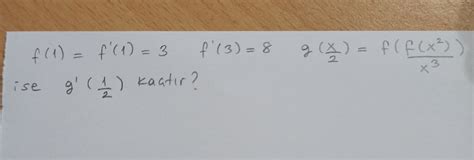 f(1) = f'(1) = 3 f'(3) = 8 g(x/2) = f(f(x²)/x³)
ise g'(1/2) kaçtır?